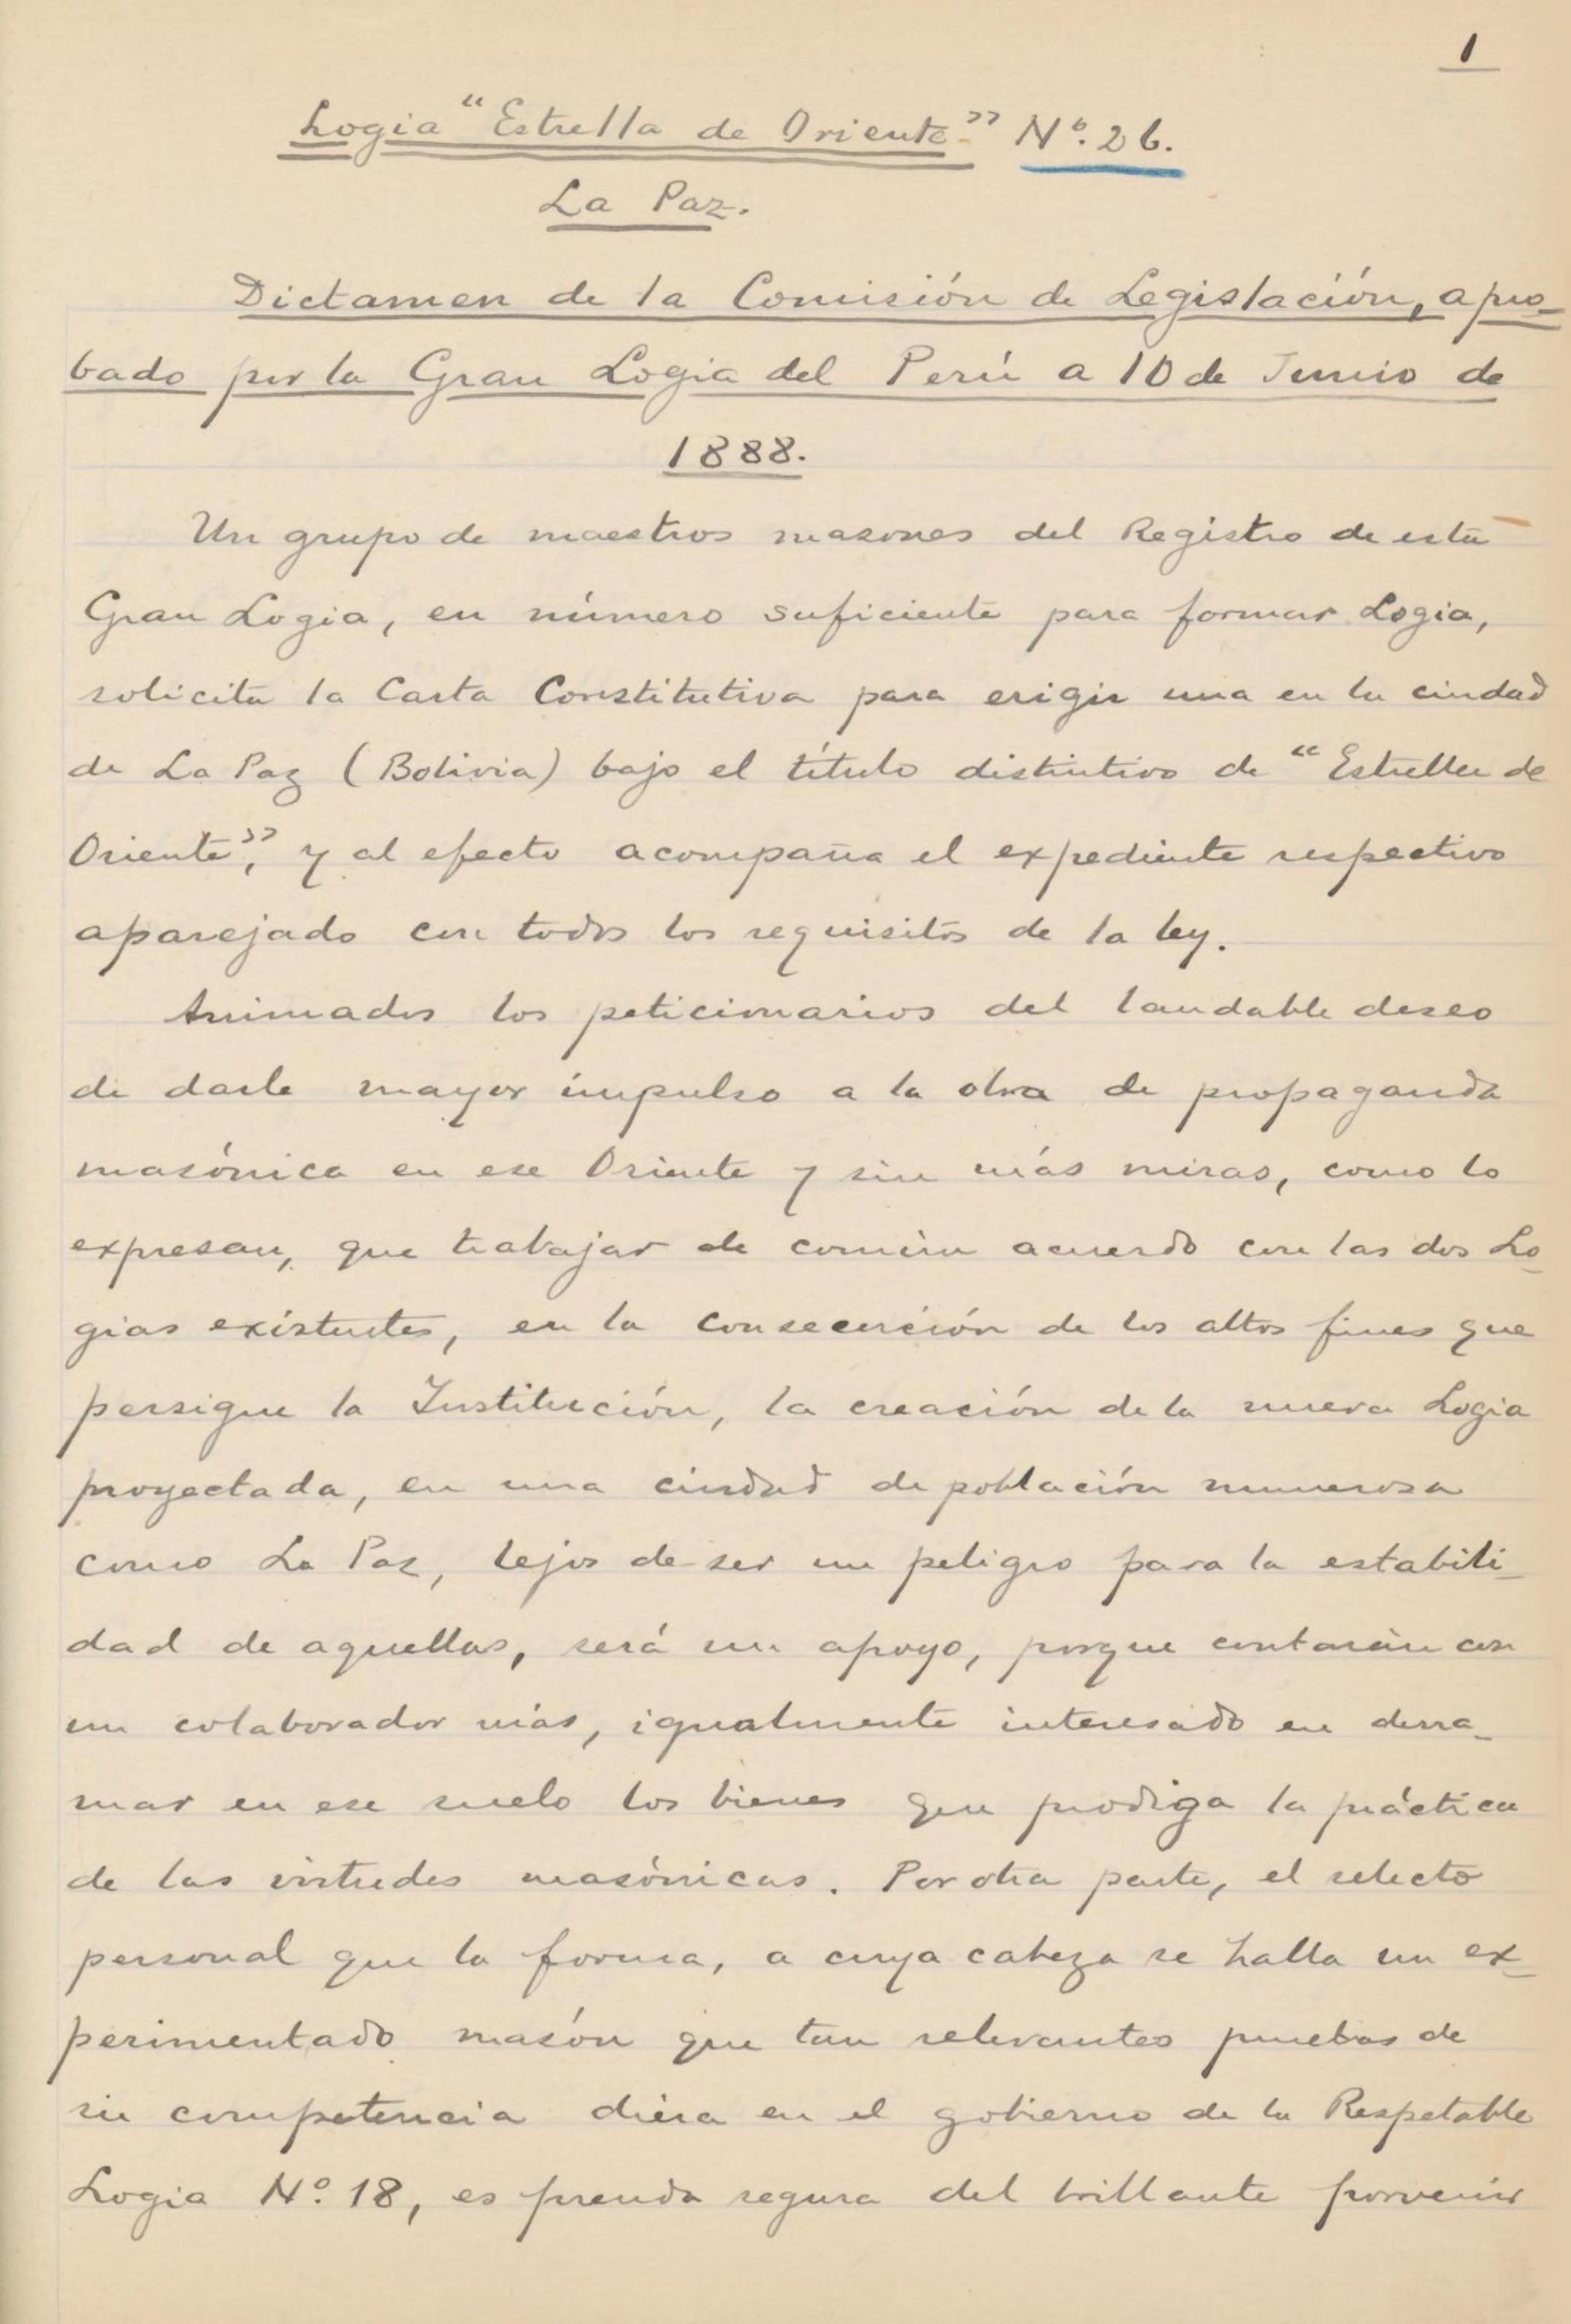 1
Logia "Estrella de Oriente" Nº. 26.
La Paz.
Dictamen de la Comisión de Legislación, apro-
bado por la Gran Logia del Perú a 10 de Junio de
1888.
Un grupo de maestros masones del Registro de esta
Gran Logia, en número suficiente para formar Logia,
solicita la Carta Constitutiva para erigir una en la ciudad
de La Paz (Bolivia) bajo el título distintivo de "Estrella de
Oriente", y al efecto acompaña el expediente respectivo
aparejado con todos los requisitos de la ley.
Animados los peticionarios del laudable deseo
de darle mayor impulso a la obra de propaganda
masónica en ese Oriente y sin más miras, como lo
expresan, que trabajar de común acuerdo con las dos Lo-
gias existentes, en la consecución de los altos fines que
persigue la Institución, la creación de la nueva Logia
proyectada, en una ciudad de población numerosa
como La Paz, lejos de ser un peligro para la estabili-
dad de aquellas, será un apoyo, porque contarán con
un colaborador más, igualmente interesado en derra-
mar en ese suelo los bienes que prodiga la práctica
de las virtudes masónicas. Por otra parte, el selecto
personal que la forma, a cuya cabeza se halla un ex-
perimentado masón que tan relevantes pruebas de
su competencia diera en el gobierno de la Respetable
Logia Nº. 18, es prenda segura del brillante porvenir